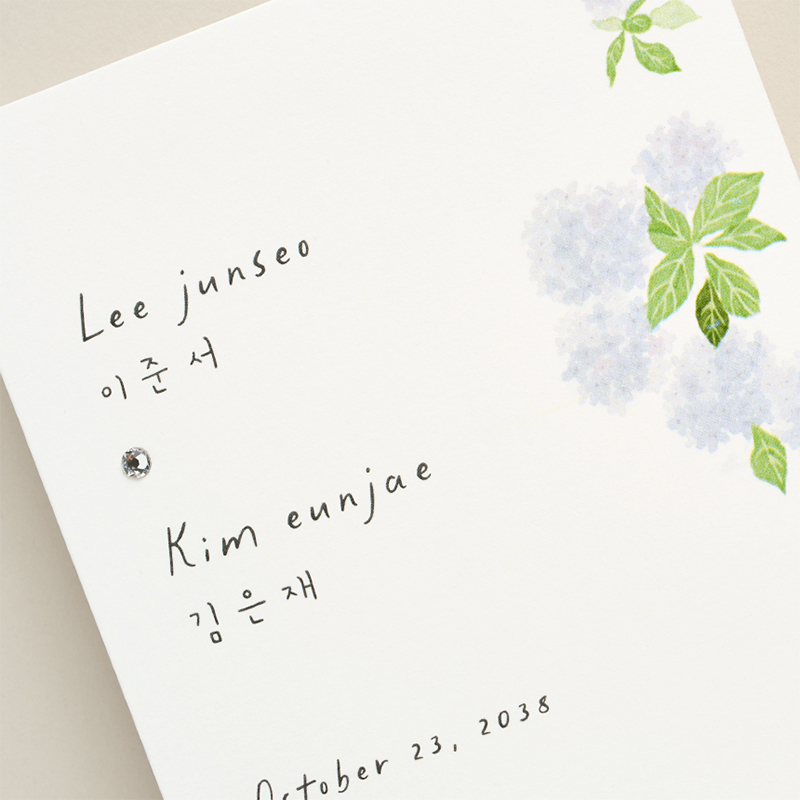 Lee junseo
이준서
Kim eunjae
김은재
October 23, 2038